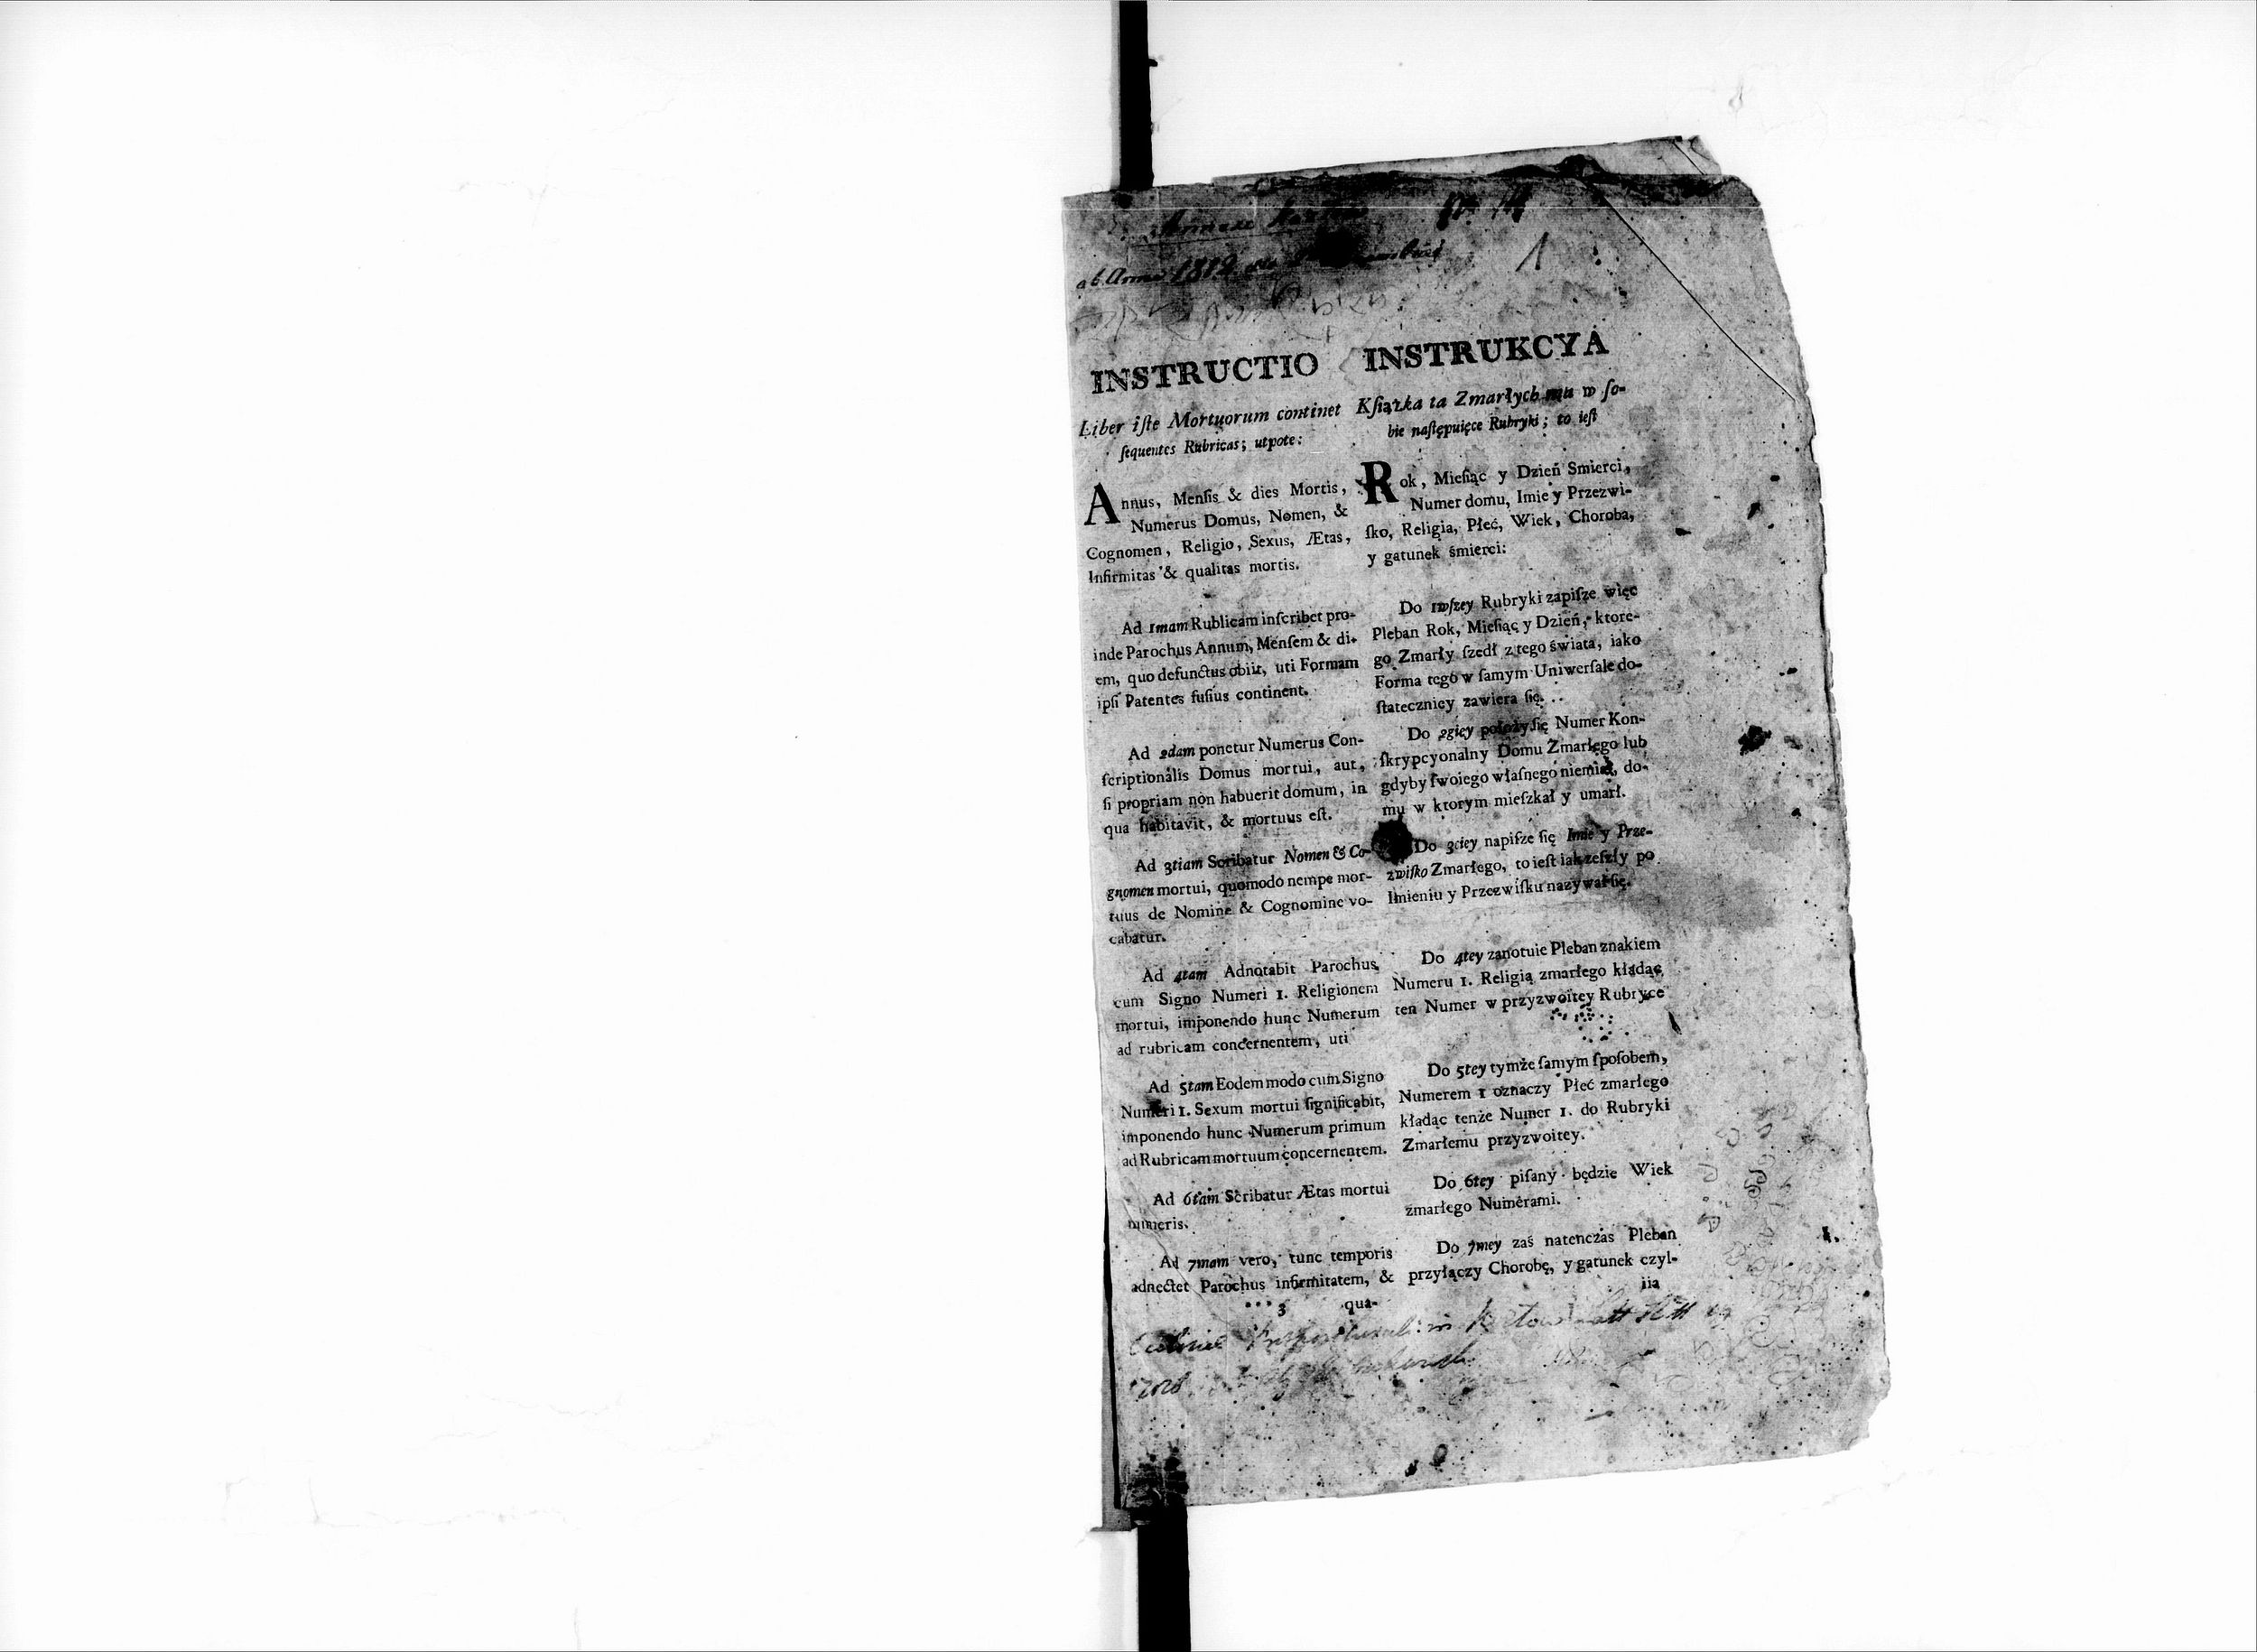 ab Anno 1812
1
INSTRUCTIO
Liber iſte Mortuorum continet
ſequentes Rubricas; utpote:
Annus, Menſis & dies Mortis,
Numerus Domus, Nomen, &
Cognomen, Religio, Sexus, Ætas,
Infirmitas & qualitas mortis.
Ad 1mam Rublicam inſcribet pro-
inde Parochus Annum, Menſem & di-
em, quo defunctus obiit, uti Formam
ipſi Patentes fuſius continent.
Ad 2dam ponetur Numerus Con-
ſcriptionalis Domus mortui, aut,
ſi propriam non habuerit domum, in
qua habitavit, & mortuus eſt.
Ad 3tiam Scribatur Nomen & Co-
gnomen mortui, quomodo nempe mor-
tuus de Nomine & Cognomine vo-
cabatur.
Ad 4tam Adnotabit Parochus
cum Signo Numeri 1. Religionem
mortui, imponendo hunc Numerum
ad rubricam concernentem, uti
Ad 5tam Eodem modo cum Signo
Numeri 1. Sexum mortui ſignificabit,
imponendo hunc Numerum primum
ad Rubricam mortuum concernentem.
Ad 6tam Scribatur Ætas mortui
numeris.
Ad 7mam vero, tunc temporis
adnectet Parochus infirmitatem, &
3 qua-
INSTRUKCYA
Kſiążka ta Zmarłych ma w ſo-
bie naſtępuięce Rubryki; to ieſt
Rok, Mieſiąc y Dzień Smierci,
Numer domu, Imie y Przezwi-
ſko, Religia, Płeć, Wiek, Choroba,
y gatunek śmierci:
Do 1wſzey Rubryki zapiſze więc
Pleban Rok, Mieſiąc y Dzień, ktore-
go Zmarły ſzedł z tego świata, iako
Forma tego w ſamym Uniwerſale do-
ſtateczniey zawiera się.
Do 2giey położy ſię Numer Kon-
ſkrypcyonalny Domu Zmarłego lub
gdyby ſwoiego właſnego niemiał, do-
mu w ktorym mieſzkał y umarł.
Do 3ciey napiſze ſię Imie y Prze-
zwiſko Zmarłego, to ieſt iak zeſzły po
Imieniu y Przezwiſku nazywał ſię.
Do 4tey zanotuie Pleban znakiem
Numeru 1. Religią zmarłego kładąc
ten Numer w przyzwoitey Rubryce
Do 5tey tymże ſamym ſpoſobem,
Numerem 1 oznaczy Płeć zmarłego
kładąc tenże Numer 1. do Rubryki
Zmarłemu przyzwoitey.
Do 6tey piſany będzie Wiek
zmarłego Numerami.
Do 7mey zaś natenczas Pleban
przyłączy Chorobę, y gatunek czyl-
iia